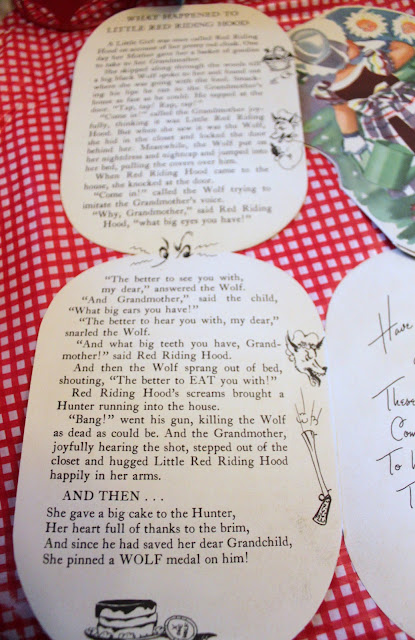 WHAT HAPPENED TO
LITTLE RED RIDING HOOD
A Little Girl was called Red Riding
Hood on account of her jaunty red cloak. One
day her Mother gave her a basket of goodies
to take to her Grandmother.
She skipped along through the woods till
a big black Wolf spoke to her and found out
where she was going with the food. Smack-
ing his lips he ran to the Grandmother's
house as fast as he could. He rapped at the
door. "Tap, tap! Rap, rap!"
"Come in!" called the Grandmother joy-
fully, thinking it was Little Red Riding
Hood. But when she saw it was the Wolf,
she hid in the closet and locked the door
behind her. Meanwhile, the Wolf put on
her nightdress and nightcap and jumped into
her bed, pulling the covers over him.
When Red Riding Hood came to the
house, she knocked at the door.
"Come in!" called the Wolf trying to
imitate the Grandmother's voice.
"Why, Grandmother," said Red Riding
Hood, "what big eyes you have!"
"The better to see you with,
my dear," answered the Wolf.
"And Grandmother," said the child,
"What big ears you have!"
"The better to hear you with, my dear,"
snarled the Wolf.
"And what big teeth you have, Grand-
mother!" said Red Riding Hood.
And then the Wolf sprang out of bed,
shouting, "The better to EAT you with!"
Red Riding Hood's screams brought a
Hunter running into the house.
"Bang!" went his gun, killing the Wolf
as dead as could be. And the Grandmother,
joyfully hearing the shot, stepped out of the
closet and hugged Little Red Riding Hood
happily in her arms.
AND THEN . . .
She gave a big cake to the Hunter,
Her heart full of thanks to the brim,
And since he had saved her dear Grandchild,
She pinned a WOLF medal on him!
Have
These
Com
To